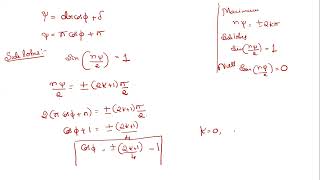 ψ = dr cosφ + δ
ψ = π cosφ + π
Side lobes:-
sin(nψ/2) = 1
nψ/2 = ±(2k+1)π/2
2(π cosφ + π) = ±(2k+1)π/2
cosφ + 1 = ±(2k+1)/4
cosφ = ±(2k+1)/4 - 1
k=0,
Maximum
nψ = ±2kπ
Sidelobes
sin(nψ/2) = 1
Null sin(nψ/2) = 0